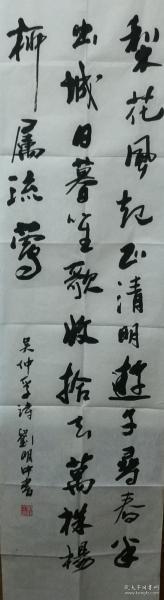 梨花风起正清明遊子尋春半
出城日暮笙歌收拾去萬株楊
柳屬流鶯
吴仲孚诗 劉明中書